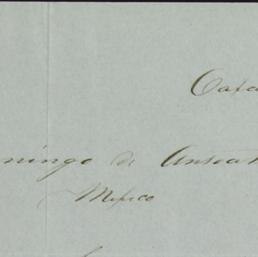 Oaxa
mingo de Ansoat
Mexico